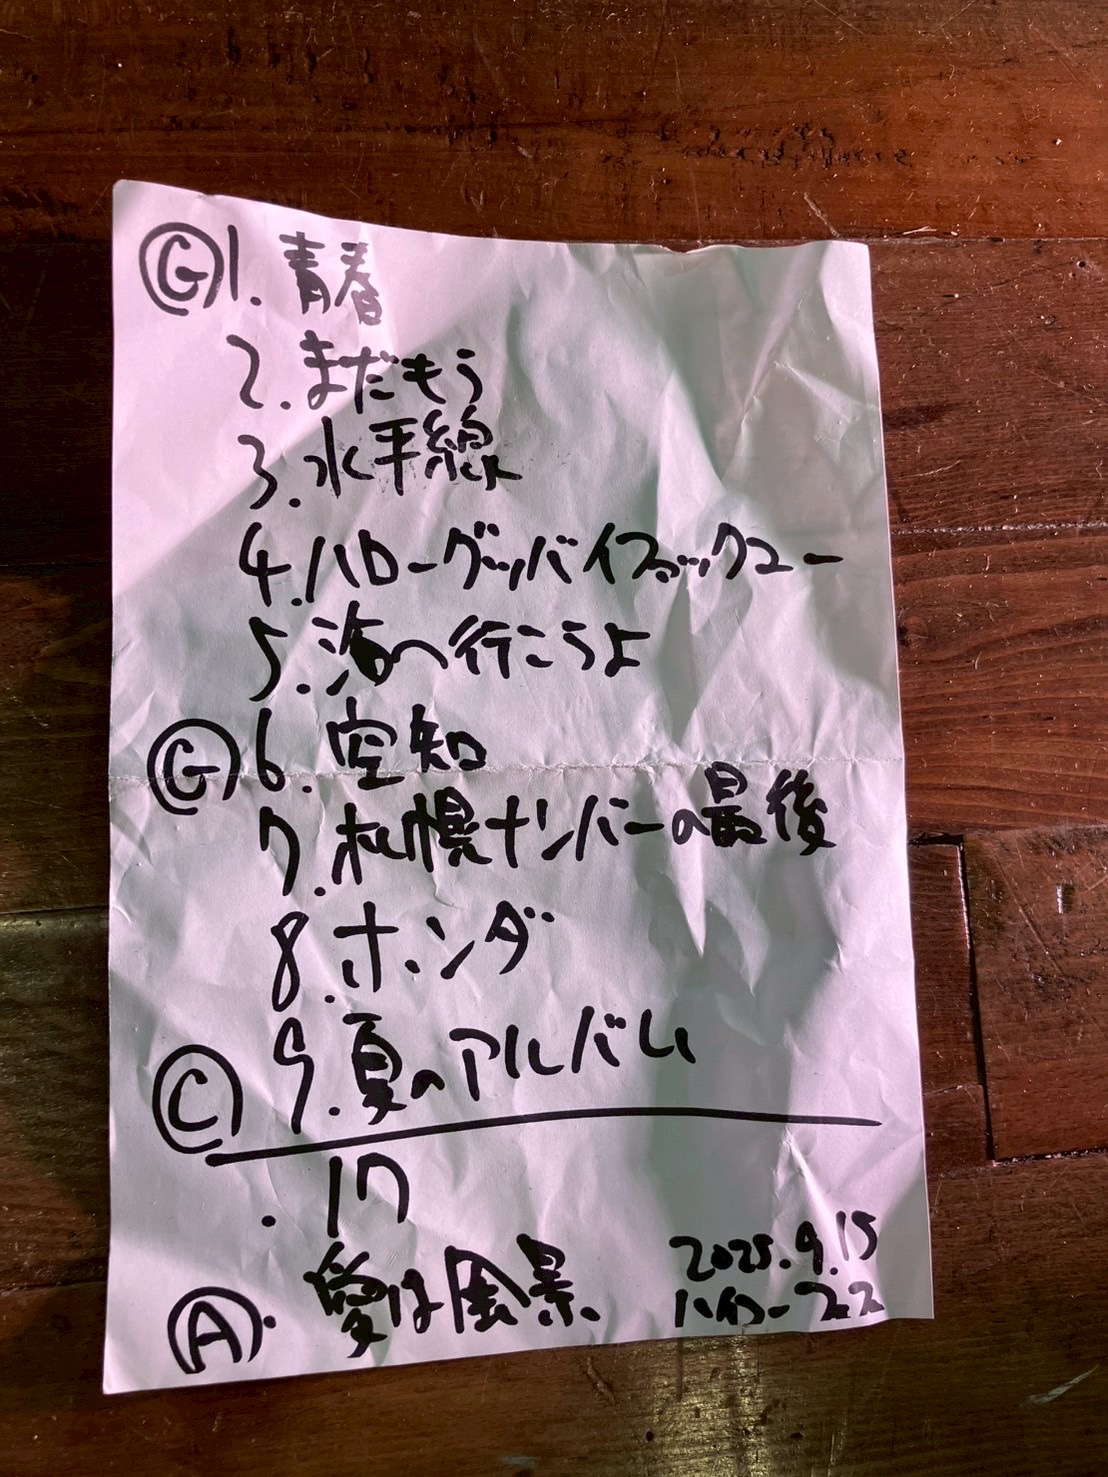 Ⓖ1. 青春
2. まだもう
3. 水平線
4. ハローグッバイブックユー
5. 海へ行こうよ
Ⓖ6. 空知
7. 札幌ナンバーの最後
8. ホンダ
Ⓒ9. 夏のアルバム
・17
Ⓐ・愛は風景
2025.9.15